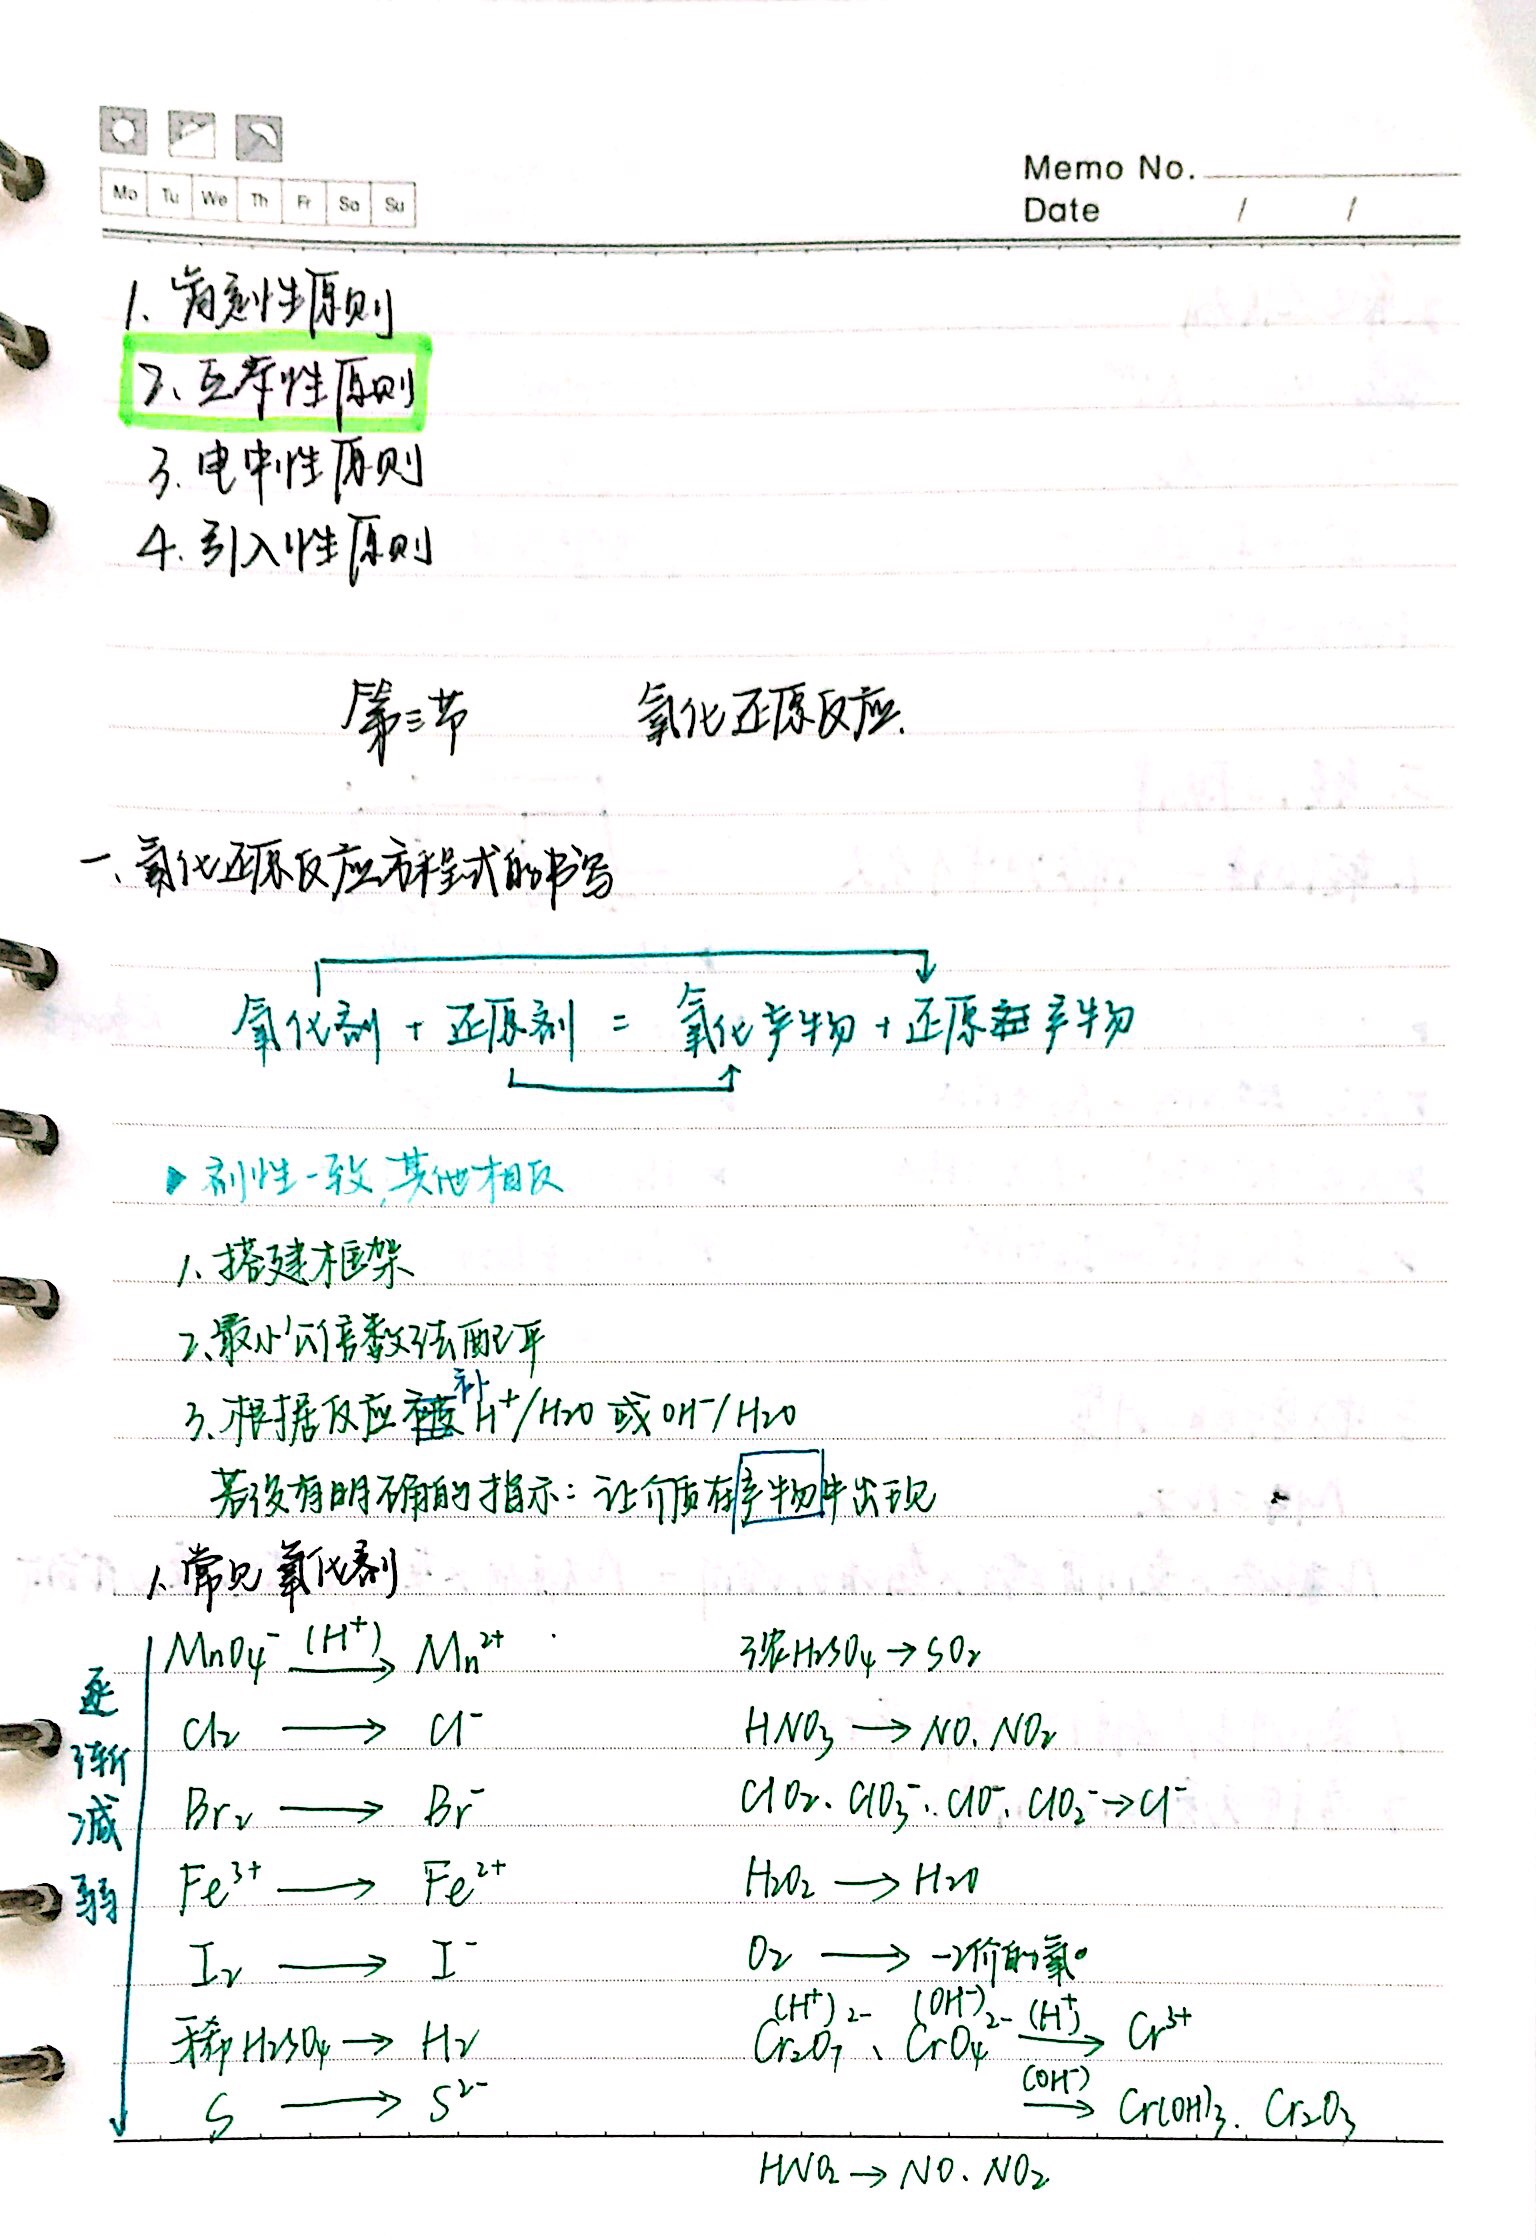 Mo Tu We Th Fr Sa Su
Memo No.
Date / /
1. 肯定性原则
2. 互斥性原则
3. 电中性原则
4. 引入性原则
第三节 氧化还原反应.
一、氧化还原反应方程式的书写
氧化剂 + 还原剂 = 氧化产物 + 还原产物
▶ 剂性一致,其他相反
1、搭建框架
2、最小公倍数法配平
3、根据反应补H⁺/H₂O 或 OH⁻/H₂O
若没有明确的指示:让介质在产物中出现
1、常见氧化剂
逐渐减弱
MnO₄⁻ (H⁺)→ Mn²⁺
Cl₂ → Cl⁻
Br₂ → Br⁻
Fe³⁺ → Fe²⁺
I₂ → I⁻
稀H₂SO₄ → H₂
S → S²⁻
浓H₂SO₄ → SO₂
HNO₃ → NO、NO₂
ClO₂、ClO₃⁻、ClO⁻、ClO₂⁻ → Cl⁻
H₂O₂ → H₂O
O₂ → -2价的氧
(H⁺) (OH⁻)
Cr₂O₇²⁻、CrO₄²⁻ (H⁺)→ Cr³⁺
(OH⁻)→ Cr(OH)₃、Cr₂O₃
HNO₂ → NO、NO₂